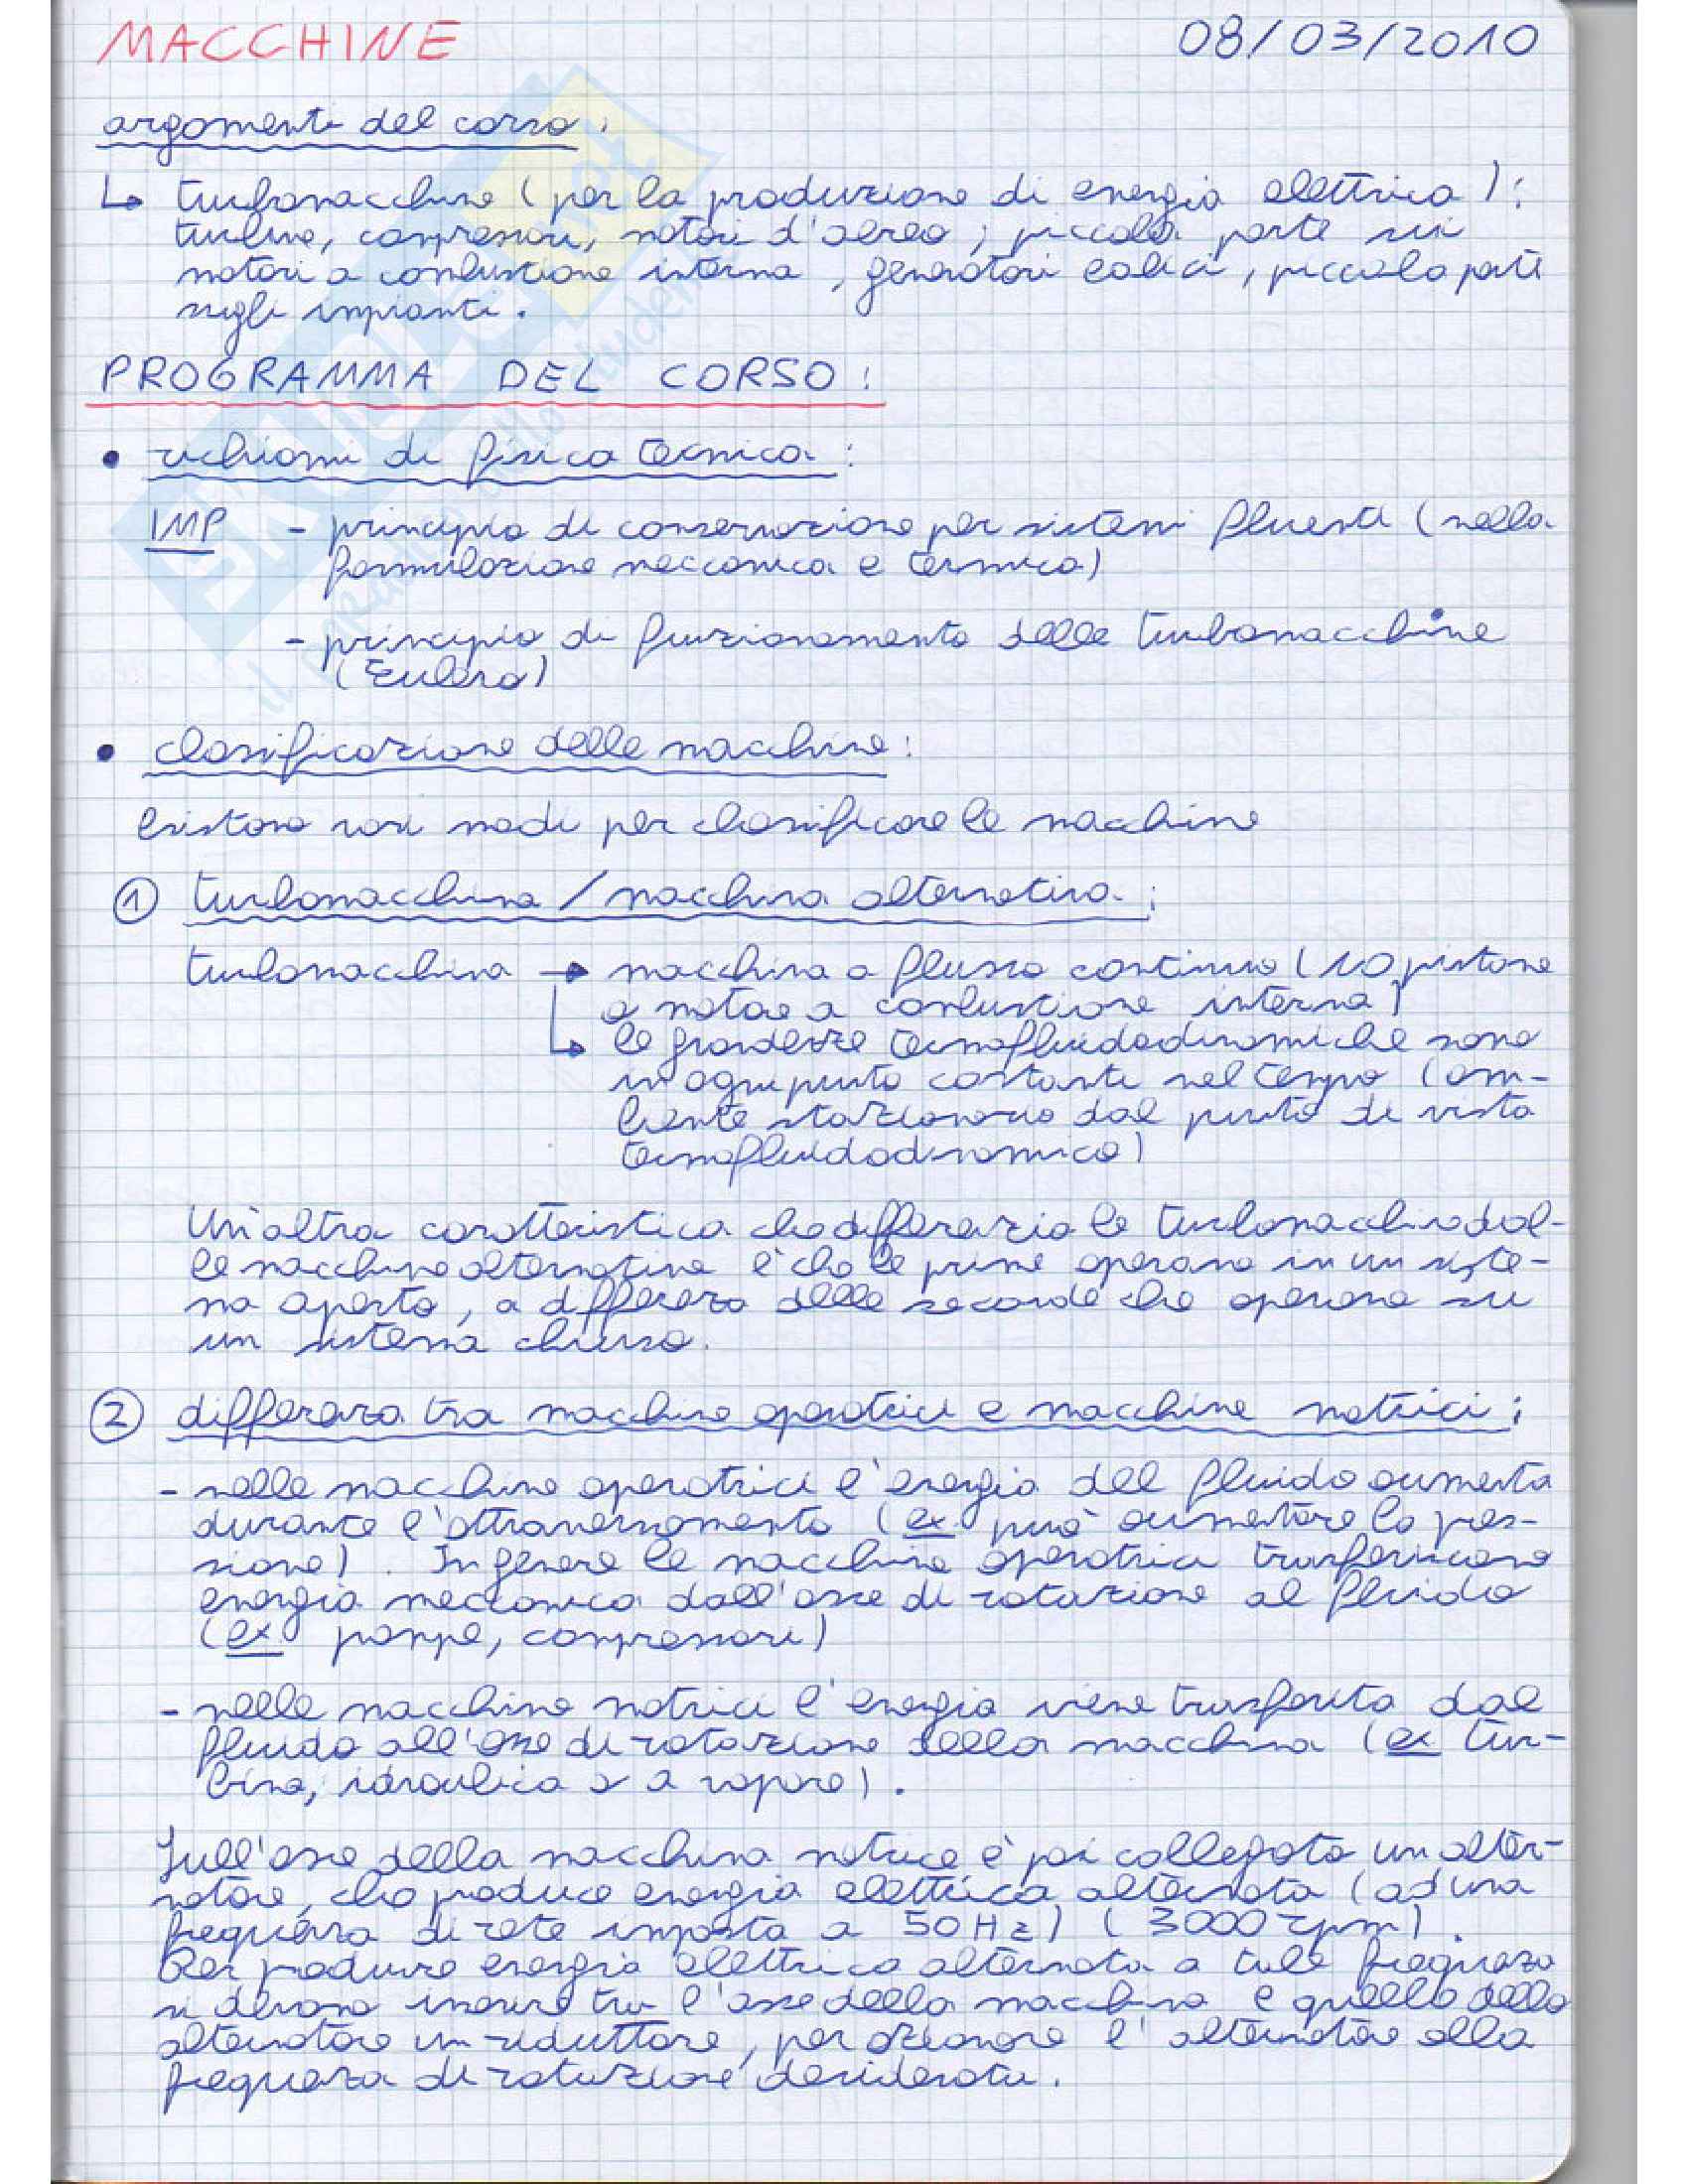 MACCHINE 08/03/2010
argomenti del corso:
↳ turbomacchine (per la produzione di energia elettrica):
turbine, compressori, motori d'aereo; piccola parte sui
motori a combustione interna, generatori eolici, piccola parte
sugli impianti.
PROGRAMMA DEL CORSO:
• richiami di fisica tecnica:
IMP - principio di conservazione per sistemi fluenti (nella
formulazione meccanica e termica)
- principio di funzionamento delle turbomacchine
(Eulero)
• classificazione delle macchine:
Esistono vari modi per classificare le macchine
① turbomacchina / macchina alternativa:
turbomacchina → macchina a flusso continuo (NO pistone
o motore a combustione interna)
↳ le grandezze termofluidodinamiche sono
in ogni punto costanti nel tempo (am-
biente stazionario dal punto di vista
termofluidodinamico)
Un'altra caratteristica che differenzia le turbomacchine dal-
le macchine alternative è che le prime operano in un siste-
ma aperto, a differenza delle seconde che operano su
un sistema chiuso.
② differenza tra macchine operatrici e macchine motrici:
- nelle macchine operatrici l'energia del fluido aumenta
durante l'attraversamento (ex può aumentare la pres-
sione). In genere le macchine operatrici trasferiscono
energia meccanica dall'asse di rotazione al fluido
(ex pompe, compressori)
- nelle macchine motrici l'energia viene trasferita dal
fluido all'asse di rotazione della macchina (ex tur-
bina, idraulica o a vapore).
Sull'asse della macchina motrice è poi collegato un alter-
natore, che produce energia elettrica alternata (ad una
frequenza di rete imposta a 50 Hz) (3000 rpm).
Per produrre energia elettrica alternata a tale frequenza
si devono inserire tra l'asse della macchina e quello dello
alternatore un riduttore, per azionare l'alternatore alla
frequenza di rotazione desiderata.
SKUOLA.net
il paradiso dello studente